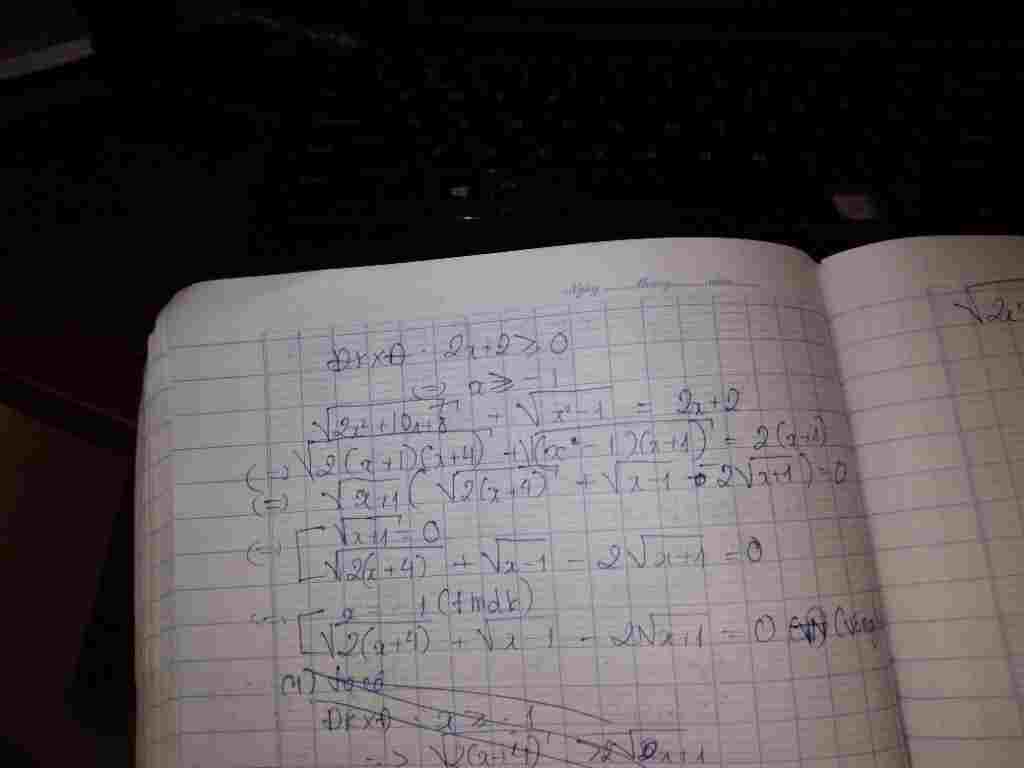 Ngày Tháng năm
ĐKXĐ: 2x+2 ≥ 0
(=) x ≥ -1
√(2x²+10x+8) + √(x²-1) = 2x+2
(=) √(2(x+1)(x+4)) + √((x-1)(x+1)) = 2(x+1)
(=) √(x+1) (√(2(x+4)) + √(x-1) - 2√(x+1)) = 0
(=) [ √(x+1) = 0
√(2(x+4)) + √(x-1) - 2√(x+1) = 0
[ x = -1 (tmđk)
√(2(x+4)) + √(x-1) - 2√(x+1) = 0
ĐKXĐ: x ≥ -1
√(2x